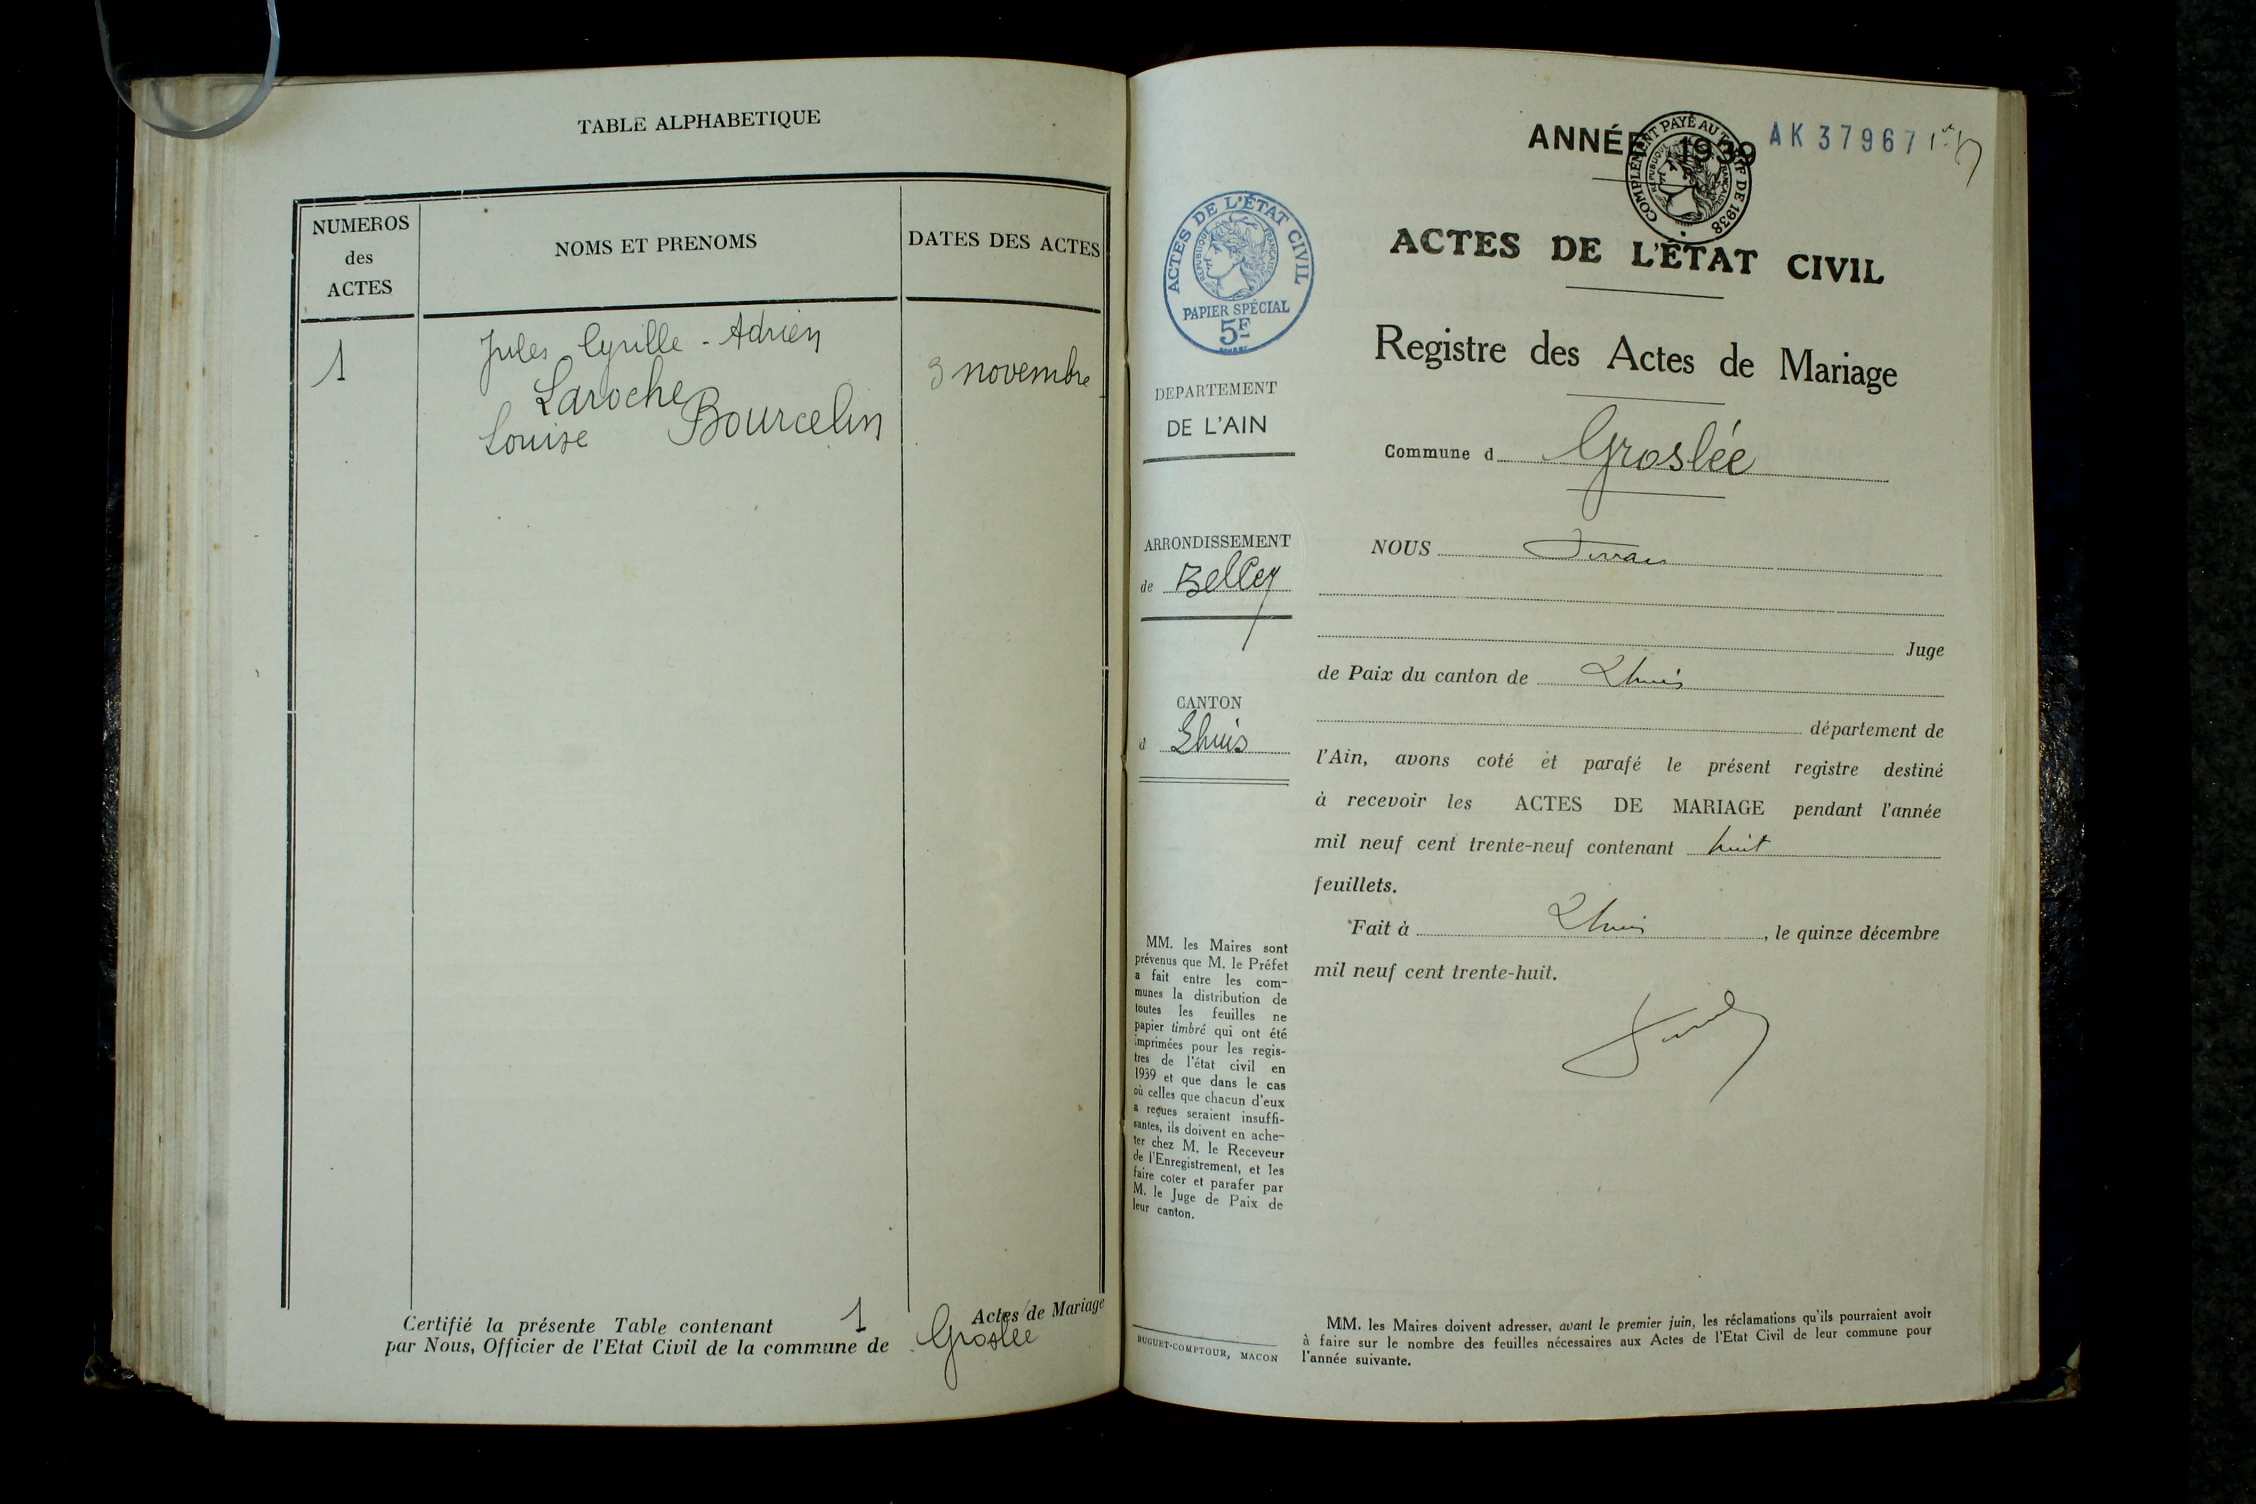 TABLE ALPHABETIQUE
NUMEROS
des
ACTES
NOMS ET PRENOMS
DATES DES ACTES
1
Jules Cyrille - Adrien
Laroche
Louise Bourcelin
3 novembre
Certifié la présente Table contenant 1 Actes de Mariage
par Nous, Officier de l'Etat Civil de la commune de Groslée
ANNÉE 1939
COMPLÉMENT PAYÉ AU TARIF DE 1938
RÉPUBLIQUE FRANÇAISE
AK 37967
ACTES DE L'ÉTAT CIVIL
RÉPUBLIQUE FRANÇAISE
PAPIER SPÉCIAL
5F
DEPARTEMENT
DE L'AIN
ARRONDISSEMENT
de Belley
CANTON
d Lhuis
MM. les Maires sont
prévenus que M. le Préfet
a fait entre les com-
munes la distribution de
toutes les feuilles ne
papier timbré qui ont été
imprimées pour les regis-
tres de l'état civil en
1939 et que dans le cas
où celles que chacun d'eux
a reçues seraient insuffi-
santes, ils doivent en ache-
ter chez M. le Receveur
de l'Enregistrement, et les
faire coter et parafer par
M. le Juge de Paix de
leur canton.
BUGUET-COMPTOUR, MACON
ACTES DE L'ÉTAT CIVIL
Registre des Actes de Mariage
Commune d Groslée
NOUS
Juge
de Paix du canton de Lhuis
département de
l'Ain, avons coté et parafé le présent registre destiné
à recevoir les ACTES DE MARIAGE pendant l'année
mil neuf cent trente-neuf contenant huit
feuillets.
Fait à Lhuis, le quinze décembre
mil neuf cent trente-huit.
MM. les Maires doivent adresser, avant le premier juin, les réclamations qu'ils pourraient avoir
à faire sur le nombre des feuilles nécessaires aux Actes de l'Etat Civil de leur commune pour
l'année suivante.